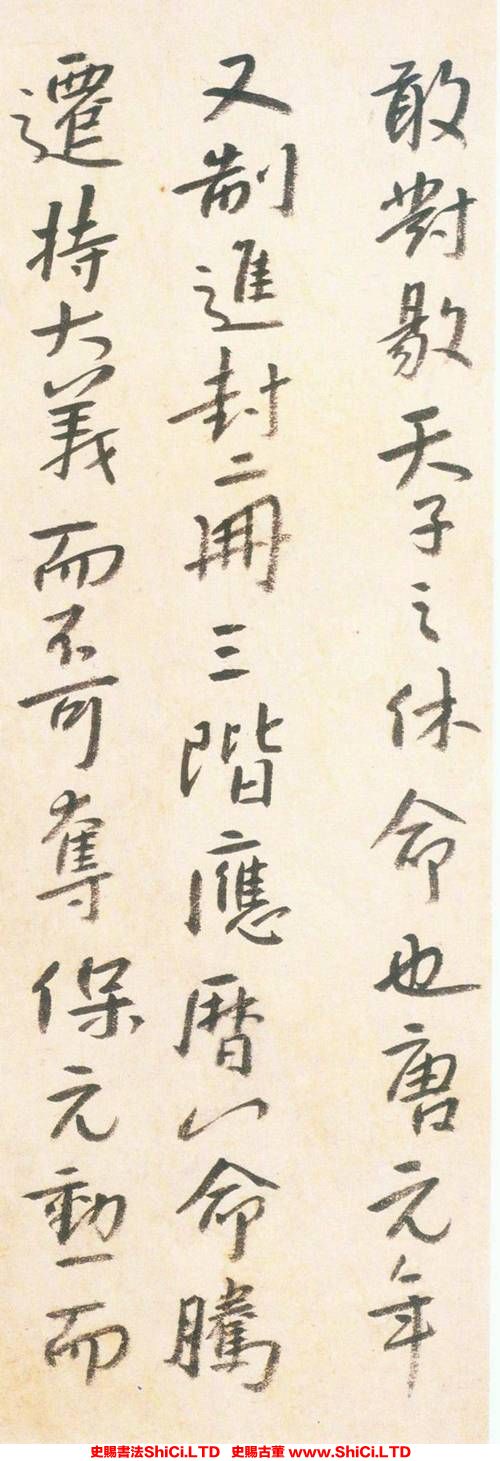 敢對敭天子之休命也唐元年
又制進封二冊三階應曆八命騰
遷持大義而不可奪保元勳而
史賜書法ShiCi.LTD 史賜古董 www.ShiCi.LTD